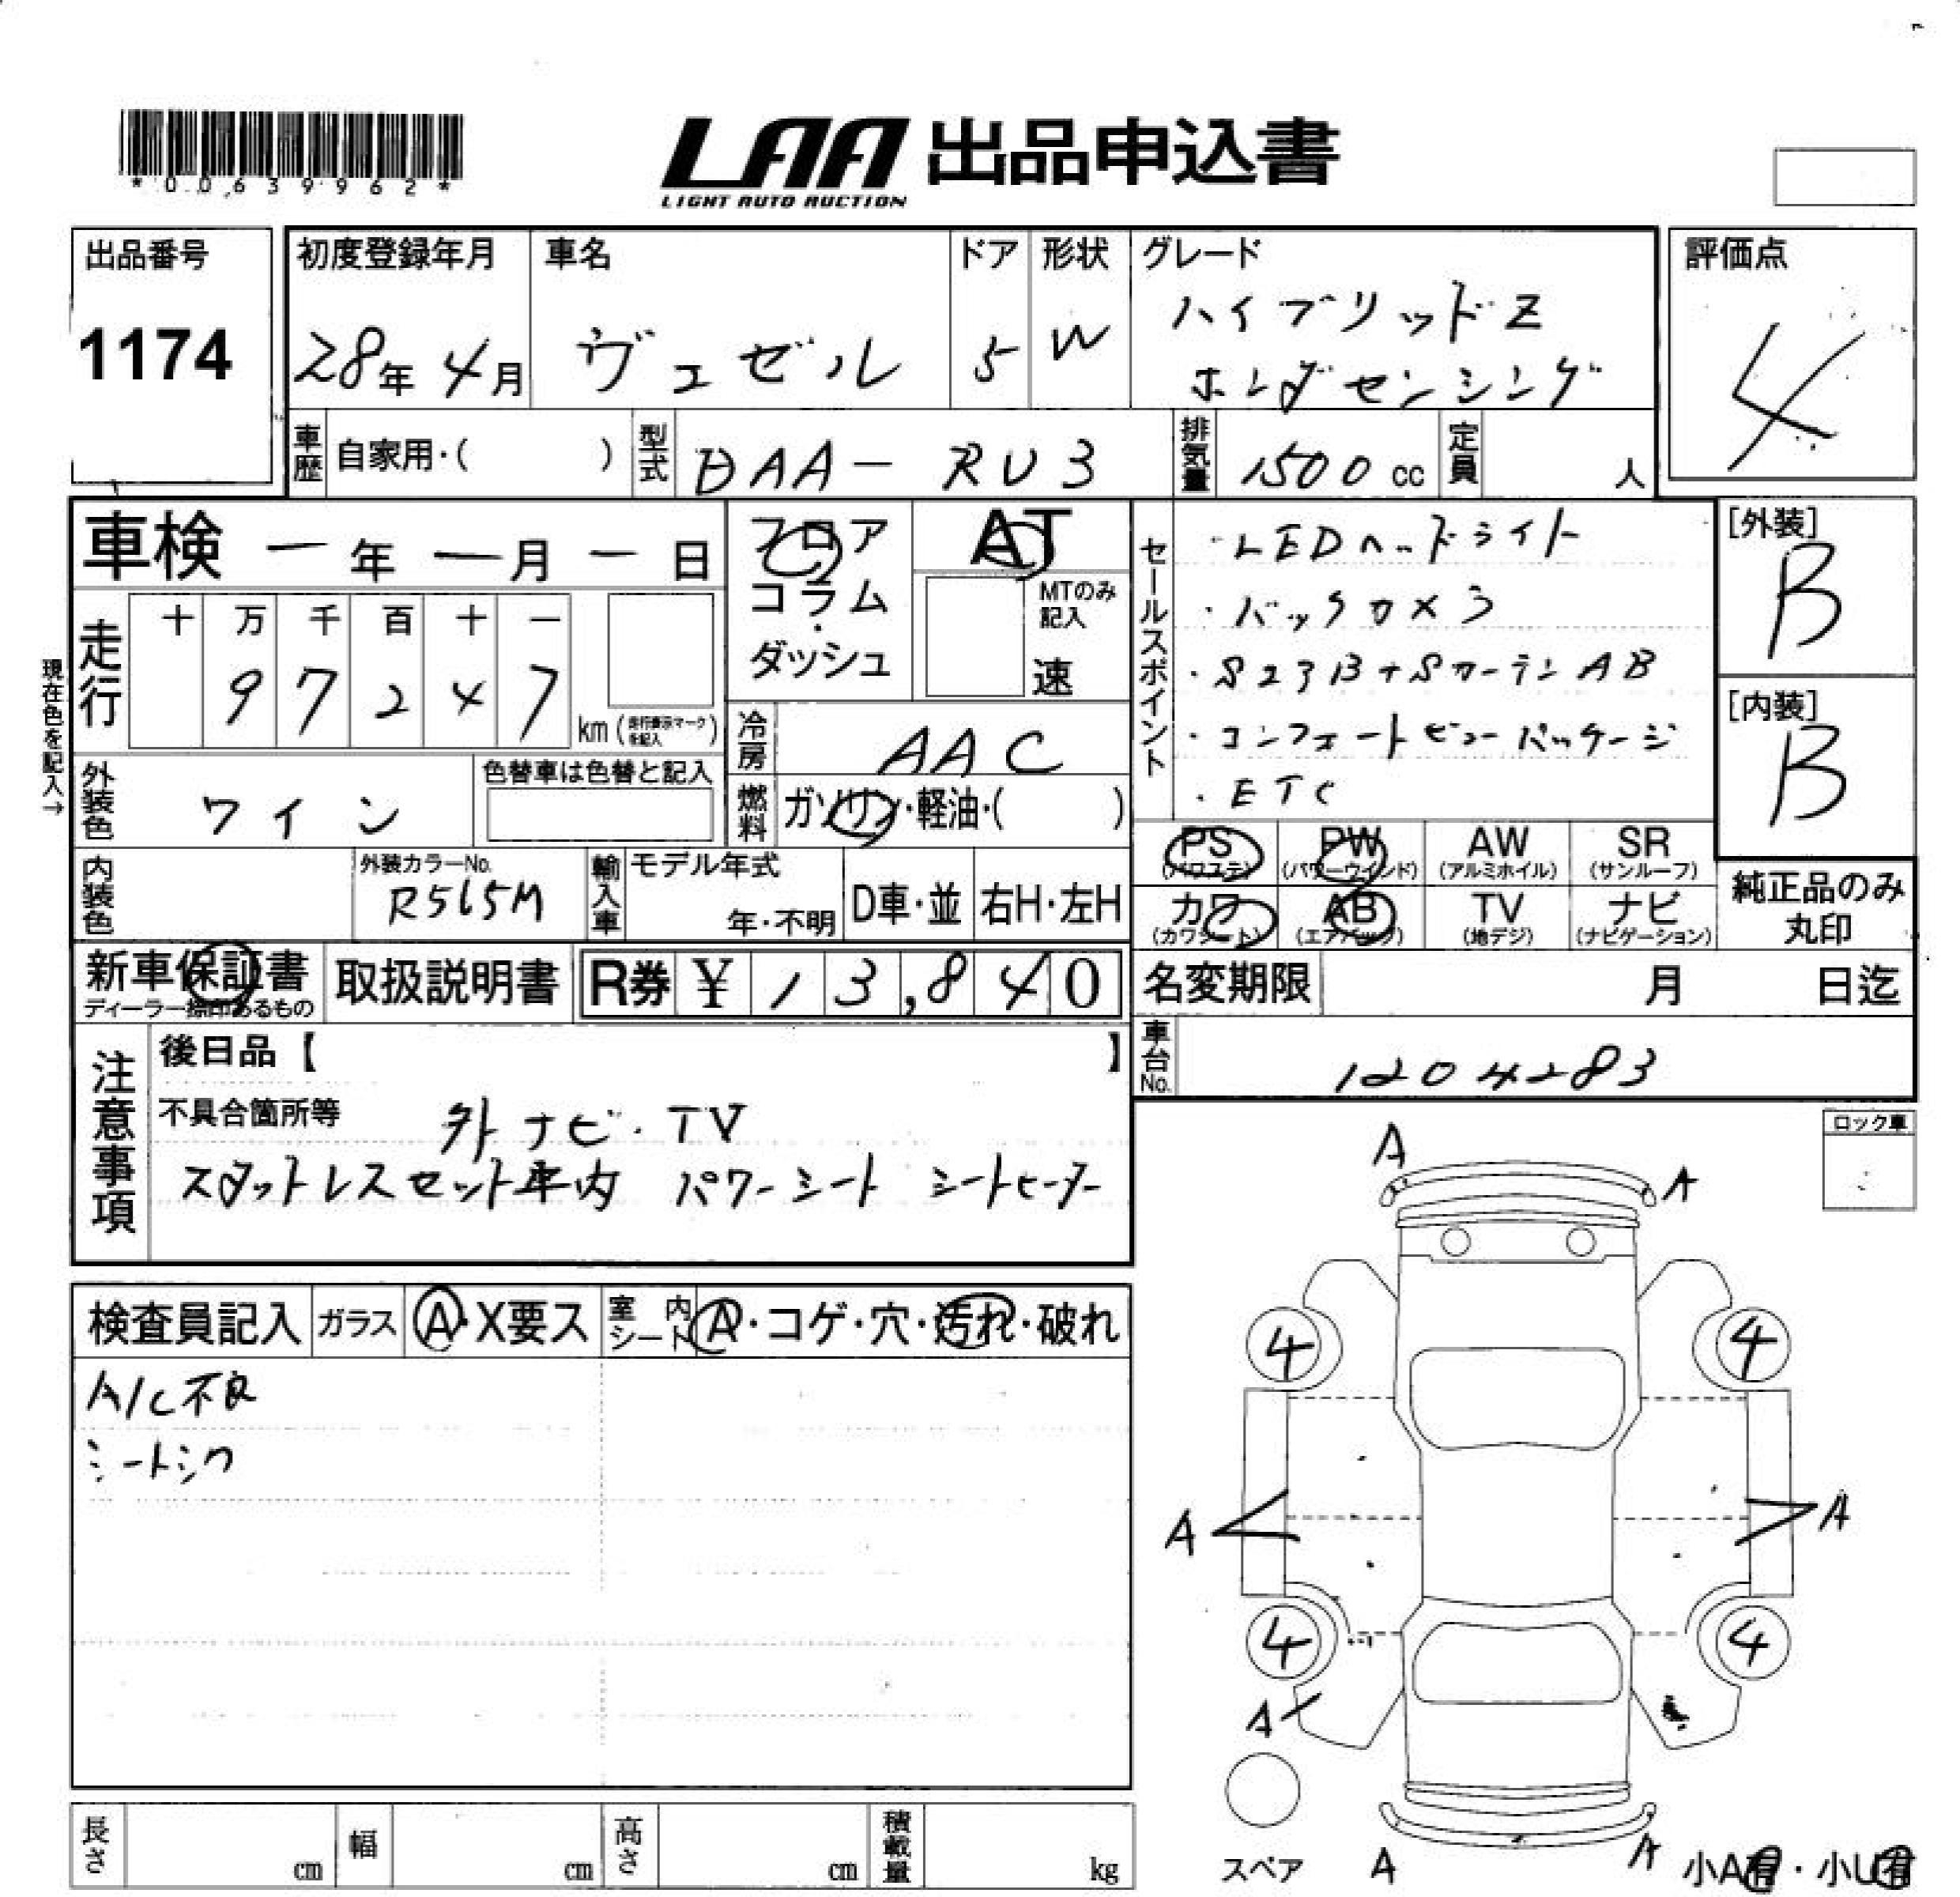 *00639962*
LAA 出品申込書
LIGHT AUTO AUCTION
出品番号
1174
初度登録年月
28年 4月
車名
ヴェゼル
ドア
5
形状
W
グレード
ハイブリッドZ
ホンダセンシング
評価点
4
車歴 自家用・( )
型式 DAA-RU3
排気量 1500 cc
定員 人
車検 ー年 ー月 ー日
フロア
コラム
・
ダッシュ
AT
MTのみ
記入
速
セールスポイント
・LEDヘッドライト
・バックカメラ
・S23B+SカーテンAB
・コンフォートビューパッケージ
・ETC
[外装]
B
[内装]
B
現在色を記入→
走行
十 万 千 百 十 一
9 7 2 4 7
km (走行表示マークを記入)
冷房 AAC
外装色 ワイン
色替車は色替と記入
燃料 ガソリン・軽油・( )
PS
(パワステ)
PW
(パワーウインド)
AW
(アルミホイル)
SR
(サンルーフ)
カワ
(カワシート)
AB
(エアバッグ)
TV
(地デジ)
ナビ
(ナビゲーション)
純正品のみ
丸印
内装色
外装カラーNo.
R565M
輸入車
モデル年式
年・不明
D車・並
右H・左H
新車保証書
ディーラー捺印あるもの
取扱説明書
R券 ¥ 13,840
名変期限 月 日迄
車台No. 1204283
注意事項
後日品【 】
不具合箇所等 外ナビ・TV
スタットレスセット車内 パワーシート シートヒーター
ロック車
検査員記入
ガラス A・X要ス
室内シート A・コゲ・穴・汚れ・破れ
A/C不良
シートシワ
A
A
4
4
A
A
4
4
A
スペア
A
A
小A有・小U有
長さ cm
幅 cm
高さ cm
積載量 kg